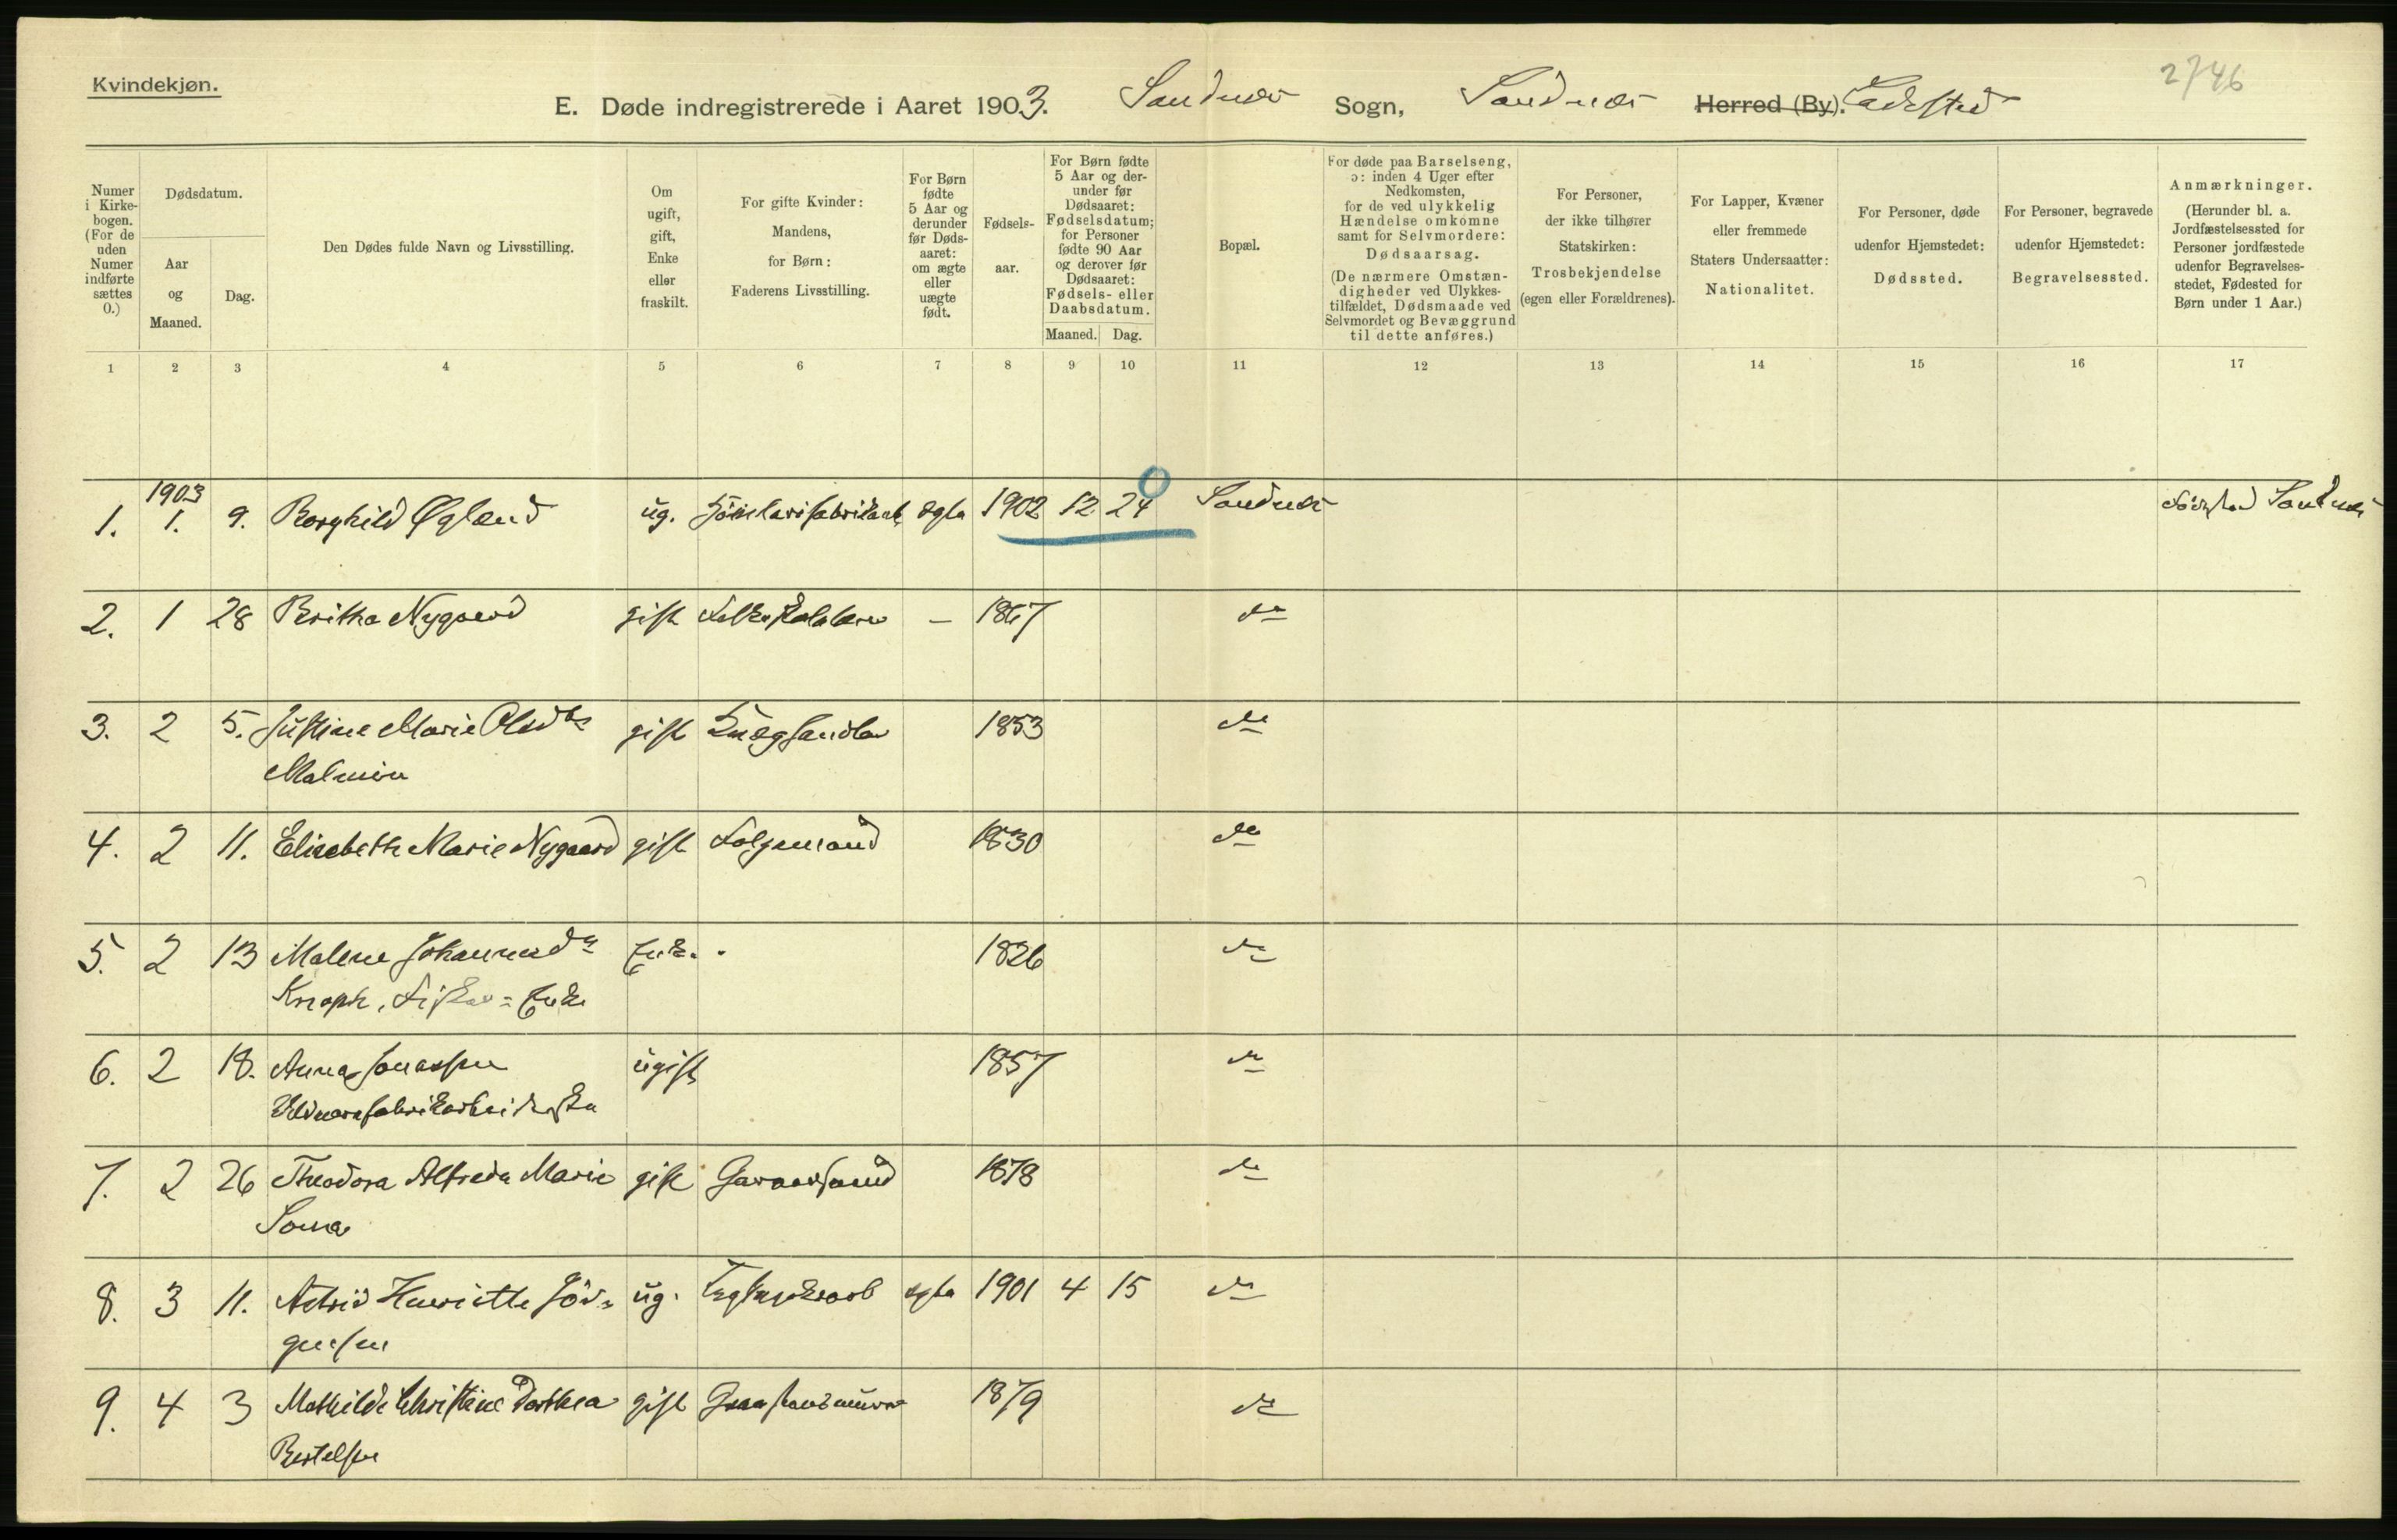 Kvindekjøn.
2746
E. Døde indregistrerede i Aaret 1903. Sandnæs Sogn, Sandnæs Herred (By). Ladested
Numer
i Kirke-
bogen.
(For de
uden
Numer
indførte
sættes
0.)
Dødsdatum.
Aar
og
Maaned.
Dag.
Den Dødes fulde Navn og Livsstilling.
Om
ugift,
gift,
Enke
eller
fraskilt.
For gifte Kvinder:
Mandens,
for Børn:
Faderens Livsstilling.
For Børn
fødte
5 Aar og
derunder
før Døds-
aaret:
om ægte
eller
uægte
født.
Fødsels-
aar.
For Børn fødte
5 Aar og der-
under før
Dødsaaret:
Fødselsdatum;
for Personer
fødte 90 Aar
og derover før
Dødsaaret:
Fødsels- eller
Daabsdatum.
Maaned. Dag.
Bopæl.
For døde paa Barselseng,
ɔ: inden 4 Uger efter
Nedkomsten,
for de ved ulykkelig
Hændelse omkomne
samt for Selvmordere:
Dødsaarsag.
(De nærmere Omstæn-
digheder ved Ulykkes-
tilfældet, Dødsmaade ved
Selvmordet og Bevæggrund
til dette anføres.)
For Personer,
der ikke tilhører
Statskirken:
Trosbekjendelse
(egen eller Forældrenes).
For Lapper, Kvæner
eller fremmede
Staters Undersaatter:
Nationalitet.
For Personer, døde
udenfor Hjemstedet:
Dødssted.
For Personer, begravede
udenfor Hjemstedet:
Begravelsessted.
Anmærkninger.
(Herunder bl. a.
Jordfæstelsessted for
Personer jordfæstede
udenfor Begravelses-
stedet, Fødested for
Børn under 1 Aar.)
1 2 3 4 5 6 7 8 9 10 11 12 13 14 15 16 17
1903
0
1. 1. 9. Borghild Øgland ug. ægte 1902 12 24 Sandnæs Sandnæs
2. 1 28 Britha Nygaard gift – 1867 do
3. 2 5. Justine Marie Olsdtr gift 1853 do
Malmin
4. 2 11. Elisabeth Marie Nygaard gift Folgemand 1830 do
5. 2 13 Malene Johannesdr Enke. 1826 do
Knoph, Fisker= Enke
6. 2 18. Anna Jonassen ugift 1857 do
Uldvarefabrikarbeiderske
7. 2 26 Theodora Alfreda Marie gift Gaardmand 1878 do
Soma
8. 3 11. Astrid Henriette Jör= ug. ægte 1901 4 15 do
gensen
9. 4 3 Mathilde Christine Dorthea gift 1879 do
Bertelsen